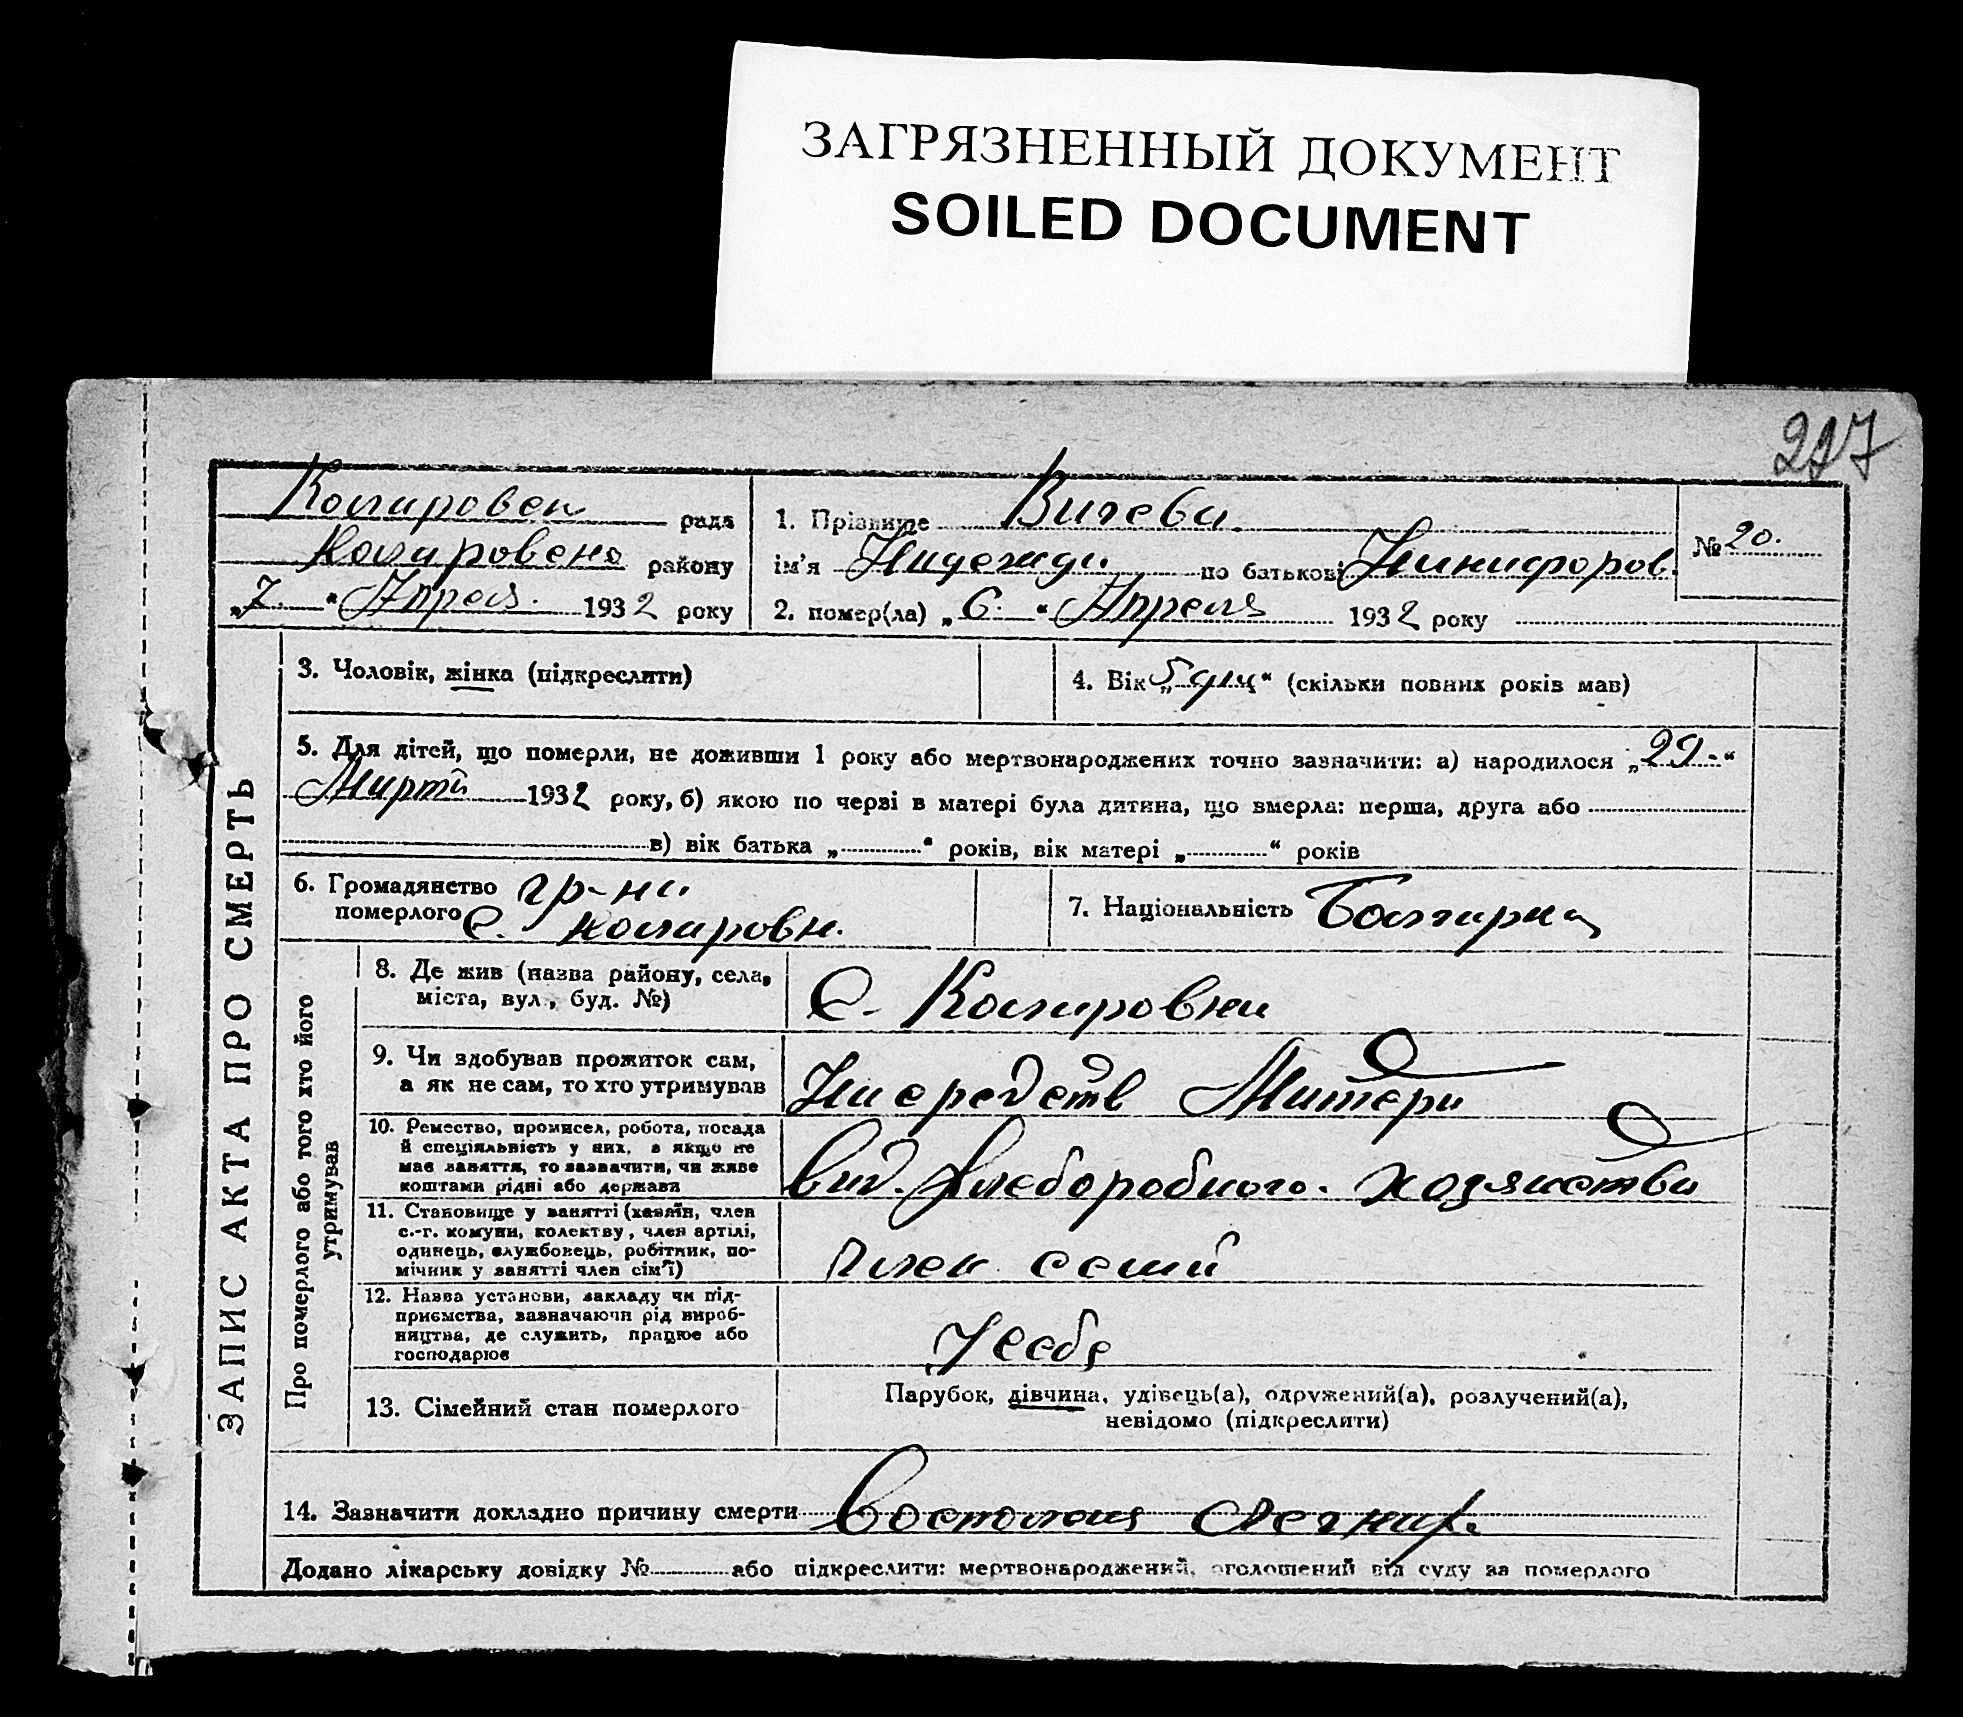 ЗАГРЯЗНЕННЫЙ ДОКУМЕНТ
SOILED DOCUMENT
227
Коларовск рада
Коларовско району
„7.“ Апреля 1932 року
1. Прізвище Вичева
ім'я Надежда по батькові Никифоров.
2. помер(ла) „6.“ Апреля 1932 року
№ 20.
ЗАПИС АКТА ПРО СМЕРТЬ
3. Чоловік, жінка (підкреслити)
4. Вік „5 дн“ (скільки повних років мав)
5. Для дітей, що померли, не доживши 1 року або мертвонароджених точно зазначити: а) народилося „29.“
Марта 1932 року, б) якою по черзі в матері була дитина, що вмерла: перша, друга або
в) вік батька „ “ років, вік матері „ “ років
6. Громадянство гр-ка
померлого с. Коларовк.
7. Національність Болгарка
Про померлого або того хто його
утримував
8. Де жив (назва району, села,
міста, вул., буд. №)
с. Коларовка
9. Чи здобував прожиток сам,
а як не сам, то хто утримував
На средств Матери
10. Ремество, промисел, робота, посада
й спеціяльність у них, а якщо не
має заняття, то зазначити, чи живе
коштами рідні або держави
вид. хлеборобного. хозяйства
11. Становище у занятті (хазяїн, член
с.-г. комуни, колективу, член артілі,
одинець, службовець, робітник, по-
мічник у занятті член сім'ї)
член семи
12. Назва установи, закладу чи під-
приємства, зазначаючи рід вироб-
ництва, де служить, працює або
господарює
У себе
13. Сімейний стан померлого
Парубок, дівчина, удівець(а), одружений(а), розлучений(а),
невідомо (підкреслити)
14. Зазначити докладно причину смерти Востоления легких.
Додано лікарську довідку № або підкреслити: мертвонароджений, оголошений від суду за померлого